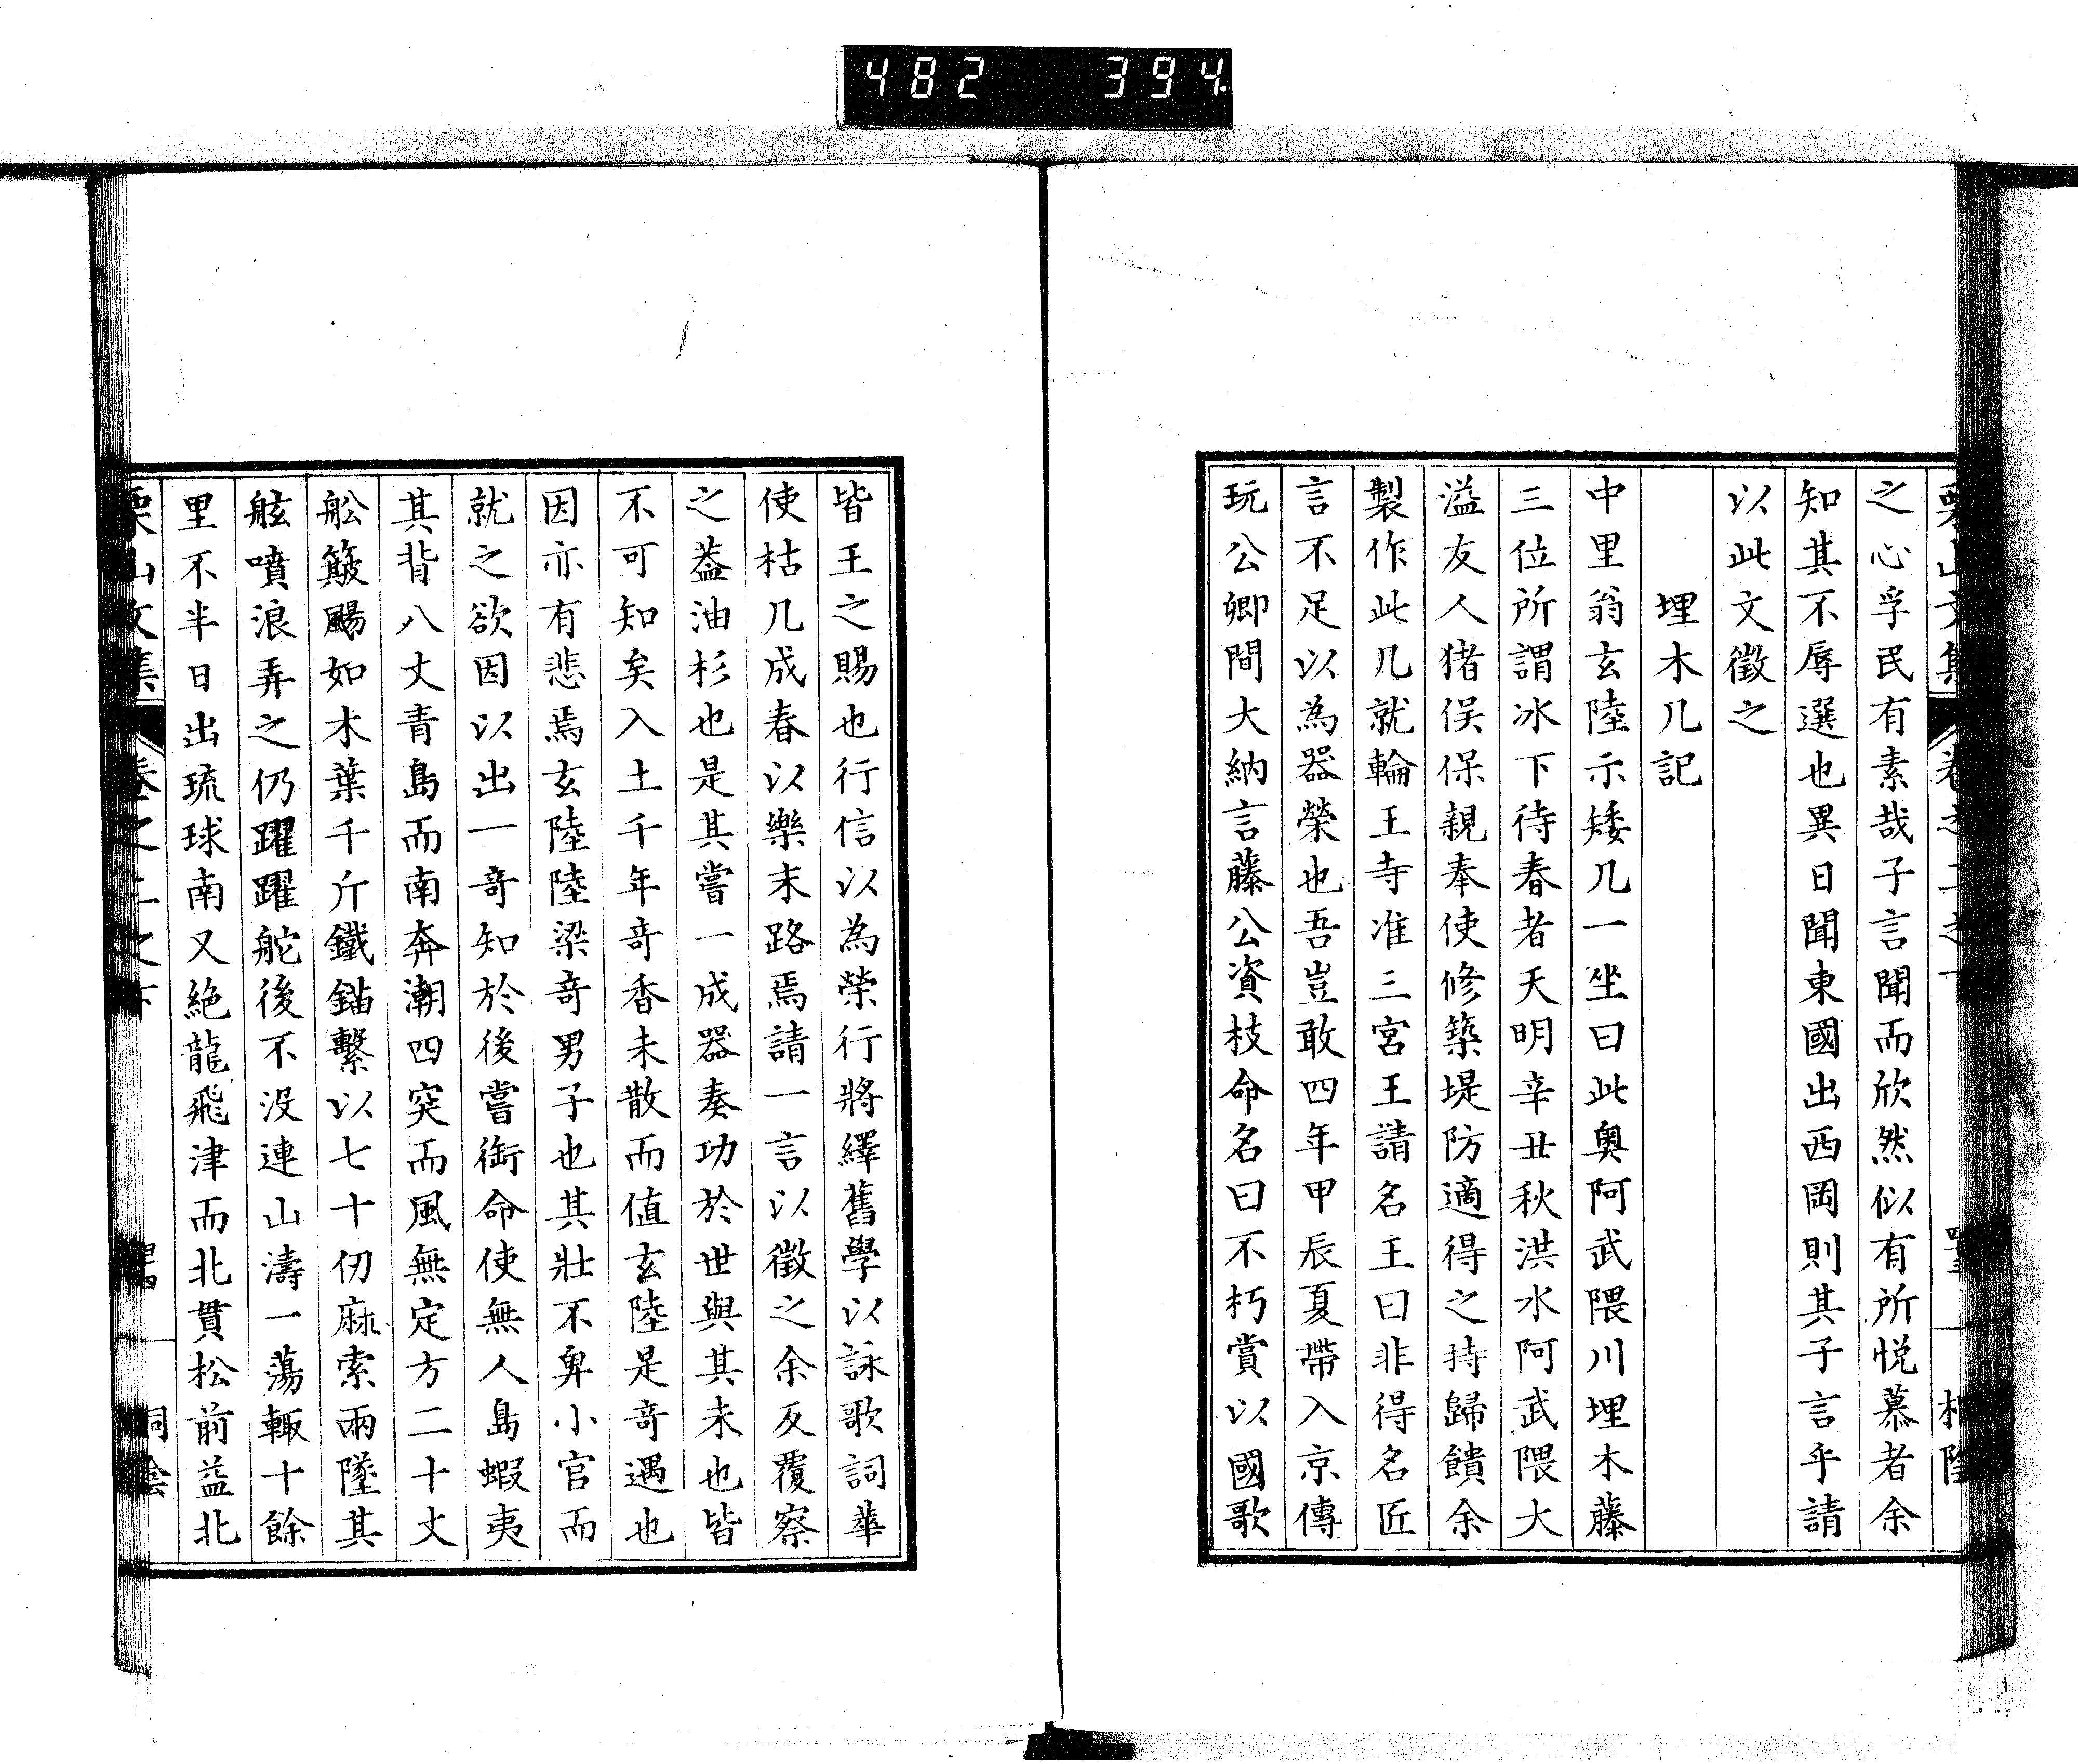 482 394.
之心孚民有素哉子言聞而欣然似有所悦慕者余
知其不辱選也異日聞東國出西岡則其子言乎請
以此文徵之
埋木几記
中里翁玄陸示矮几一坐曰此奥阿武隈川埋木藤
三位所謂冰下待春者天明辛丑秋洪水阿武隈大
溢友人猪俣保親奉使修築堤防適得之持歸饋余
製作此几就輪王寺准三宮王請名王曰非得名匠
言不足以為器榮也吾豈敢四年甲辰夏帶入京傳
玩公卿間大納言藤公資枝命名曰不朽賞以國歌
皆王之賜也行信以為榮行將繹舊學以詠歌詞華
使枯几成春以樂末路焉請一言以徵之余反覆察
之葢油杉也是其嘗一成器奏功於世與其未也皆
不可知矣入土千年竒香未散而值玄陸是竒遇也
因亦有悲焉玄陸陸梁竒男子也其壯不卑小官而
就之欲因以出一竒知於後嘗銜命使無人島蝦夷
其背八丈青島而南奔潮四突而風無定方二十丈
舩簸颺如木葉千斤鐵錨繫以七十仞麻索兩墜其
舷噴浪弄之仍躍躍舵後不没連山濤一蕩輙十餘
里不半日出琉球南又絶龍飛津而北貫松前益北
栗山文集 卷之二之下